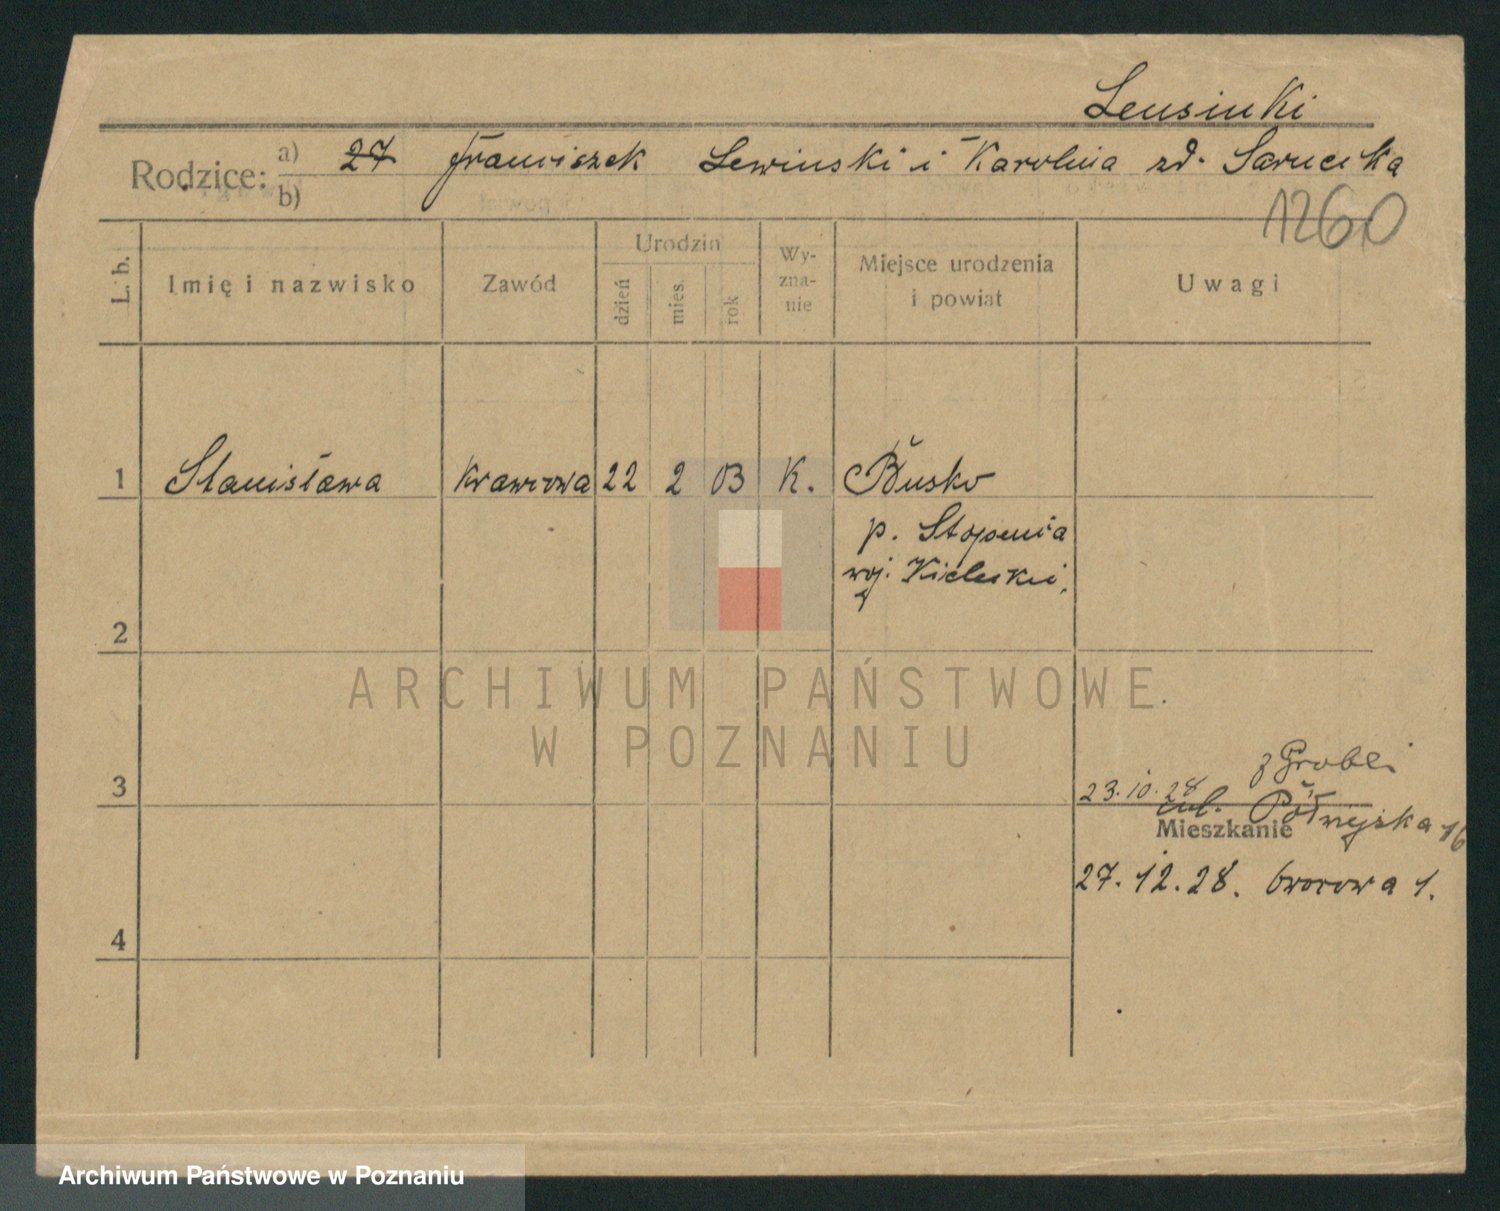 Leusinki
Rodzice: a) 27 Franciszek Lewinski i Karolina zd.
b)
1260
L. b.
Imię i nazwisko
Zawód
Urodzin
dzień
mies.
rok
Wy-
zna-
nie
Miejsce urodzenia
i powiat
Uwagi
1 Stanisława Krawcowa 22 2 03 K. Busko
p. Stopnica
woj. Kieleckie,
2
ARCHIWUM PAŃSTWOWE
W POZNANIU
z Grobli
3
23.10.28 ul. Półwiejska 16
Mieszkanie
27.12.28. Owocowa 1.
4
Archiwum Państwowe w Poznaniu